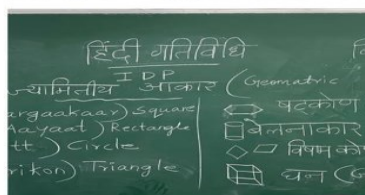 हिंदी गतिविधि
IDP
ज्यामितीय आकार (Geometric
argaakaar) Square
Aayaat) Rectangle
tt.) Circle
rikon) Triangle
षट्कोण
बेलनाकार
विषम को
घन (G